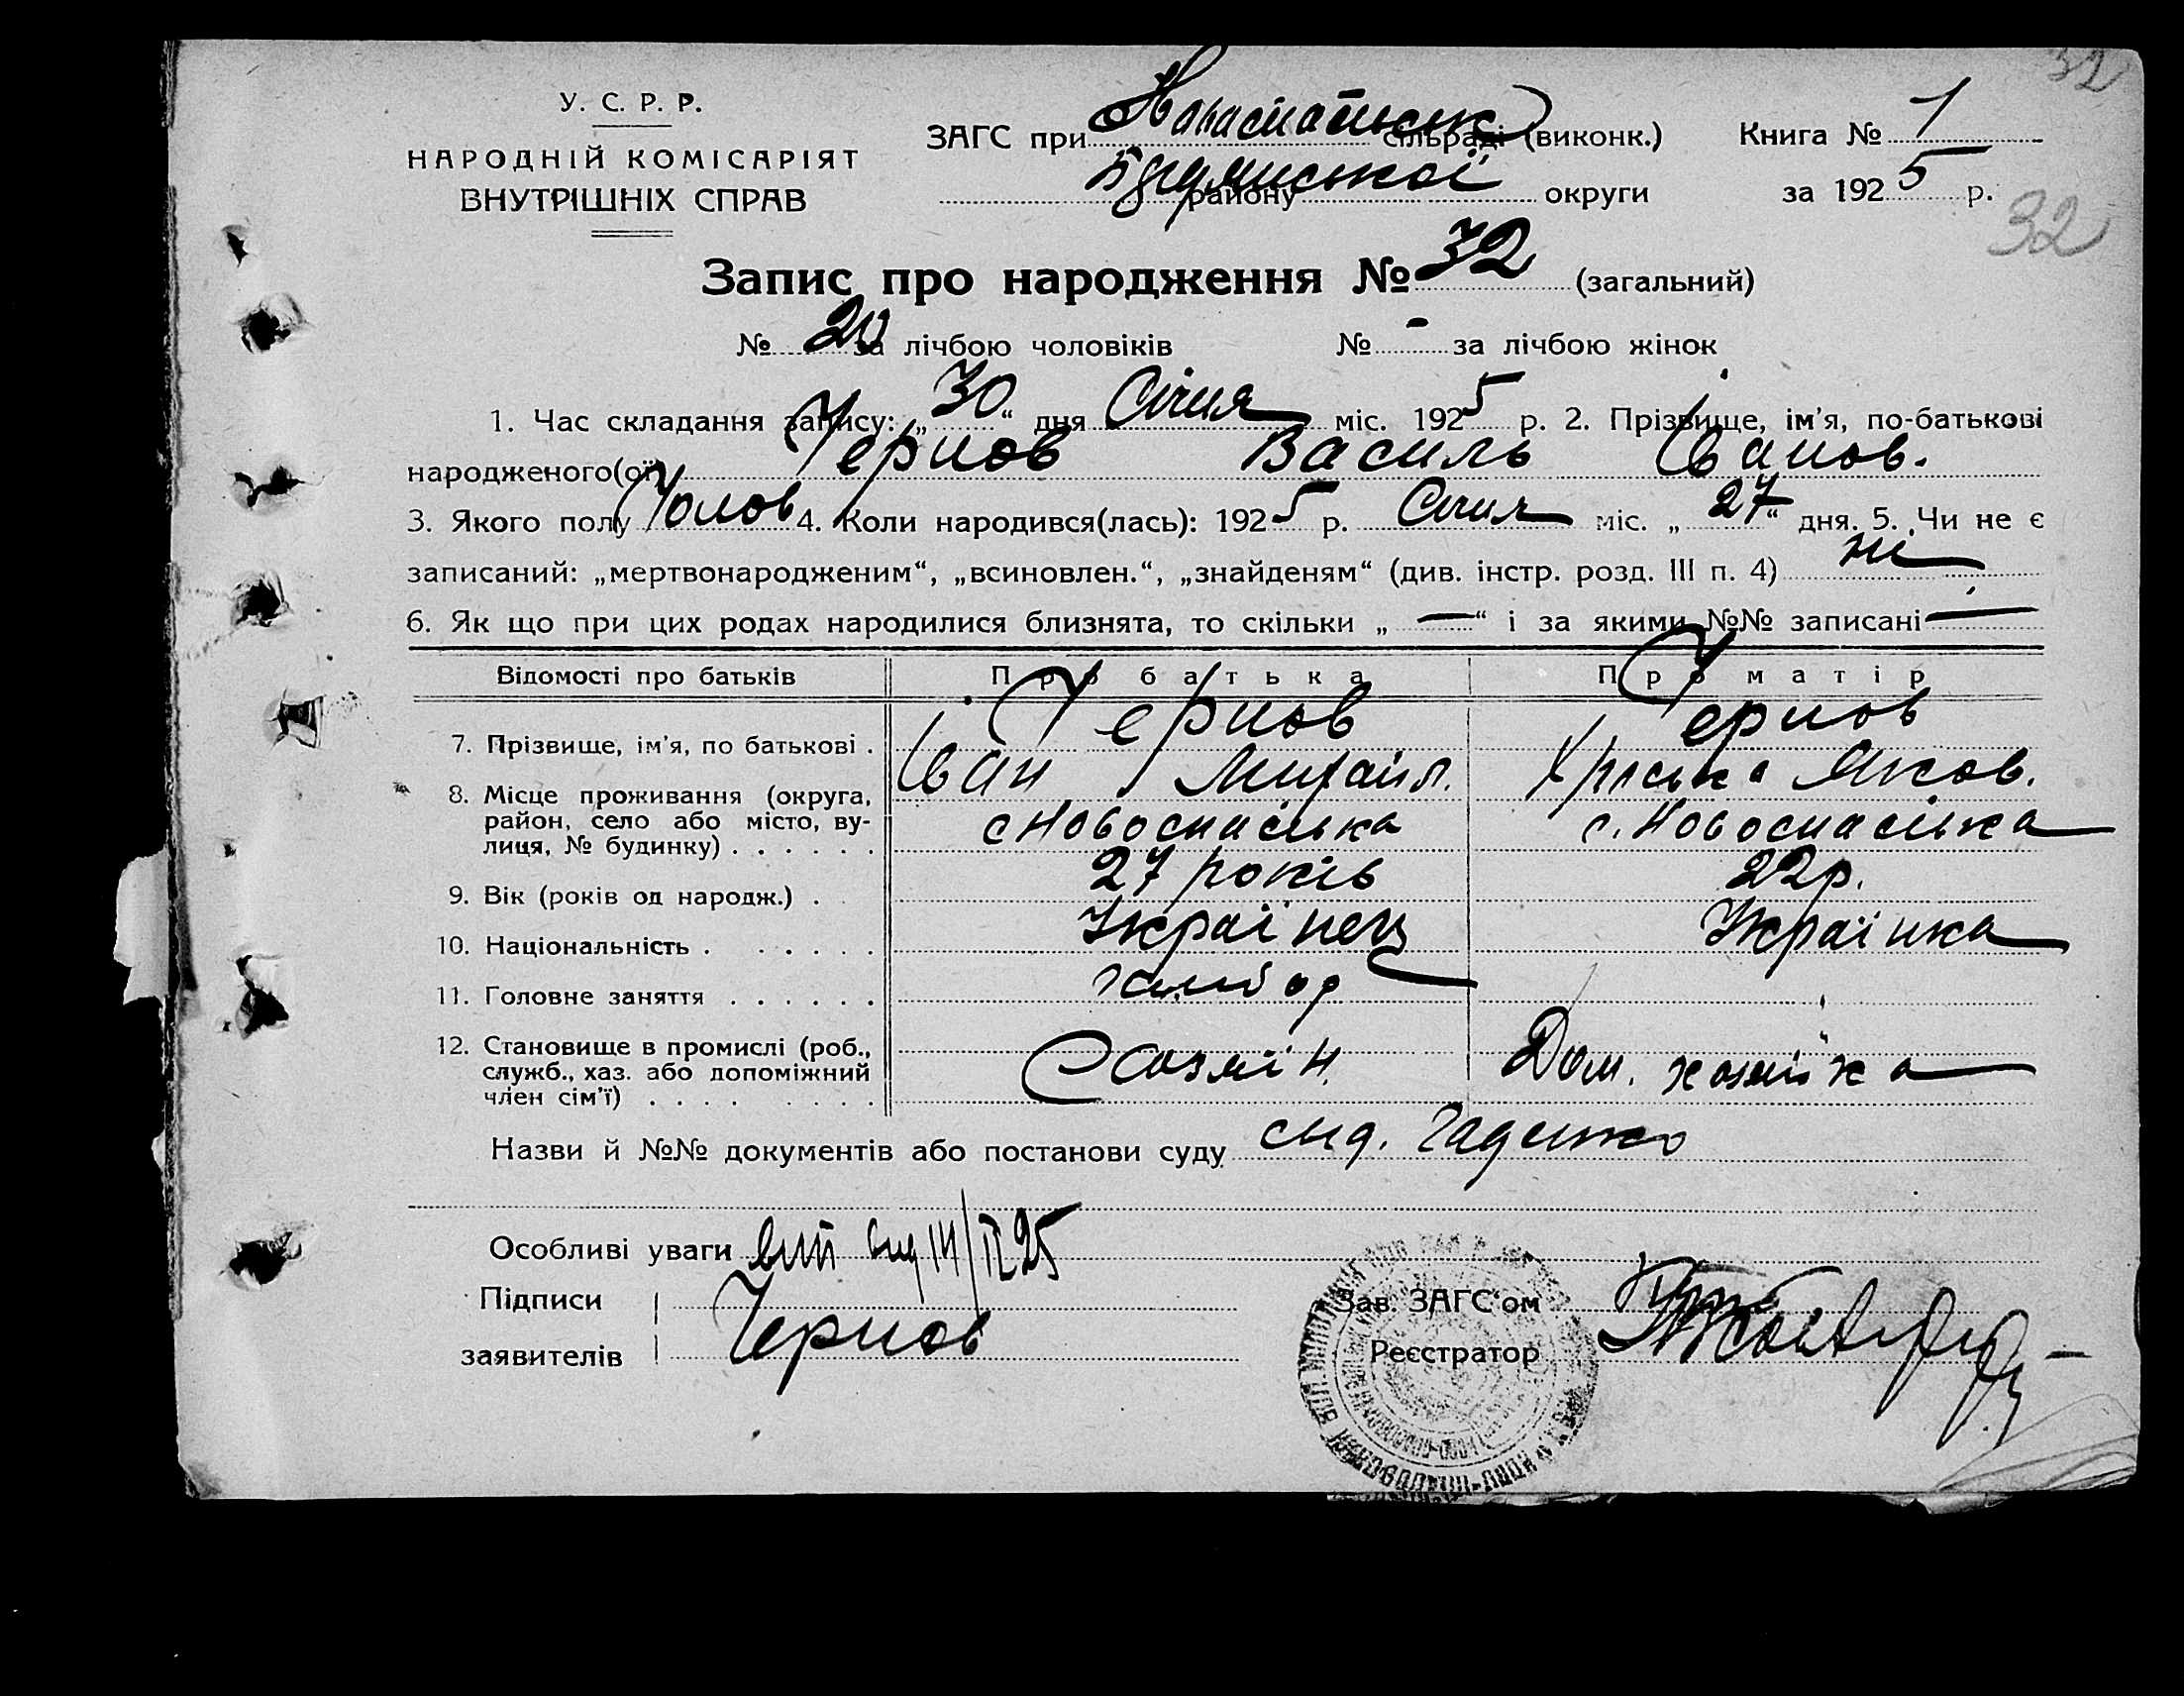 32
У. С. Р. Р.
НАРОДНІЙ КОМІСАРІЯТ
ВНУТРІШНІХ СПРАВ
ЗАГС при сільраді (виконк.)
району округи
Книга № 1
за 1925 р.
32
Запис про народження № 32 (загальний)
№ 20 за лічбою чоловіків № - за лічбою жінок
1. Час складання запису: „30“ дня Січня міс. 1925 р. 2. Прізвище, ім'я, по-батькові
народженого(ої) Чернов Василь Іванов.
3. Якого полу Чолов 4. Коли народився(лась): 1925 р. Січня міс. „27“ дня. 5. Чи не є
записаний: „мертвонародженим“, „всиновлен.“, „знайденям“ (див. інстр. розд. III п. 4) ні
6. Як що при цих родах народилися близнята, то скільки „—“ і за якими №№ записані —
Відомості про батьків Про батька Про матір
7. Прізвище, ім'я, по батькові . Чернов Чернов
Іван Михайл. Яков.
8. Місце проживання (округа, район, село або місто, вулиця, № будинку) . . . . . . с Новоспаська с. Новоспаська
9. Вік (років од народж.) . 27 років 22р.
10. Національність . . . . . . Українець Українка
11. Головне заняття . . . . . . хлібор
12. Становище в промислі (роб., служб., хаз. або допоміжний член сім'ї) . . . . . . . . Хозяїн. Дом. хозяйка
Назви й №№ документів або постанови суду
Особливі уваги 14/II 25
Підписи
заявителів Чернов
Зав. ЗАГС'ом
Реєстратор